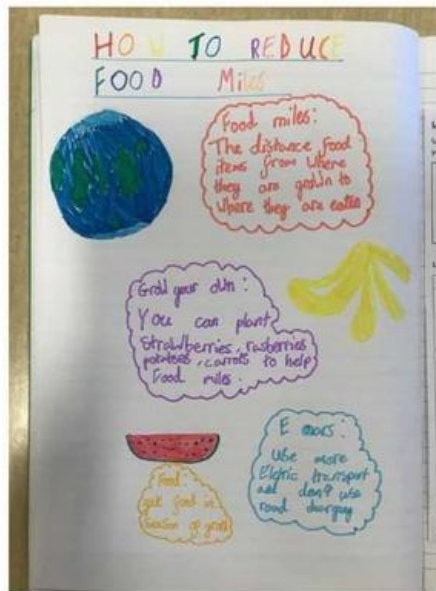 HOW TO REDUCE
FOOD Miles
Food miles:
The distance food
items from where
they are grown to
where they are eaten
Grow your own:
You can plant
Strawberries, rasberries
potatoes, carrots to help
Food miles.
E cars:
Use more
Eletric transport
and don't use
road charging
Food:
get food in
season of